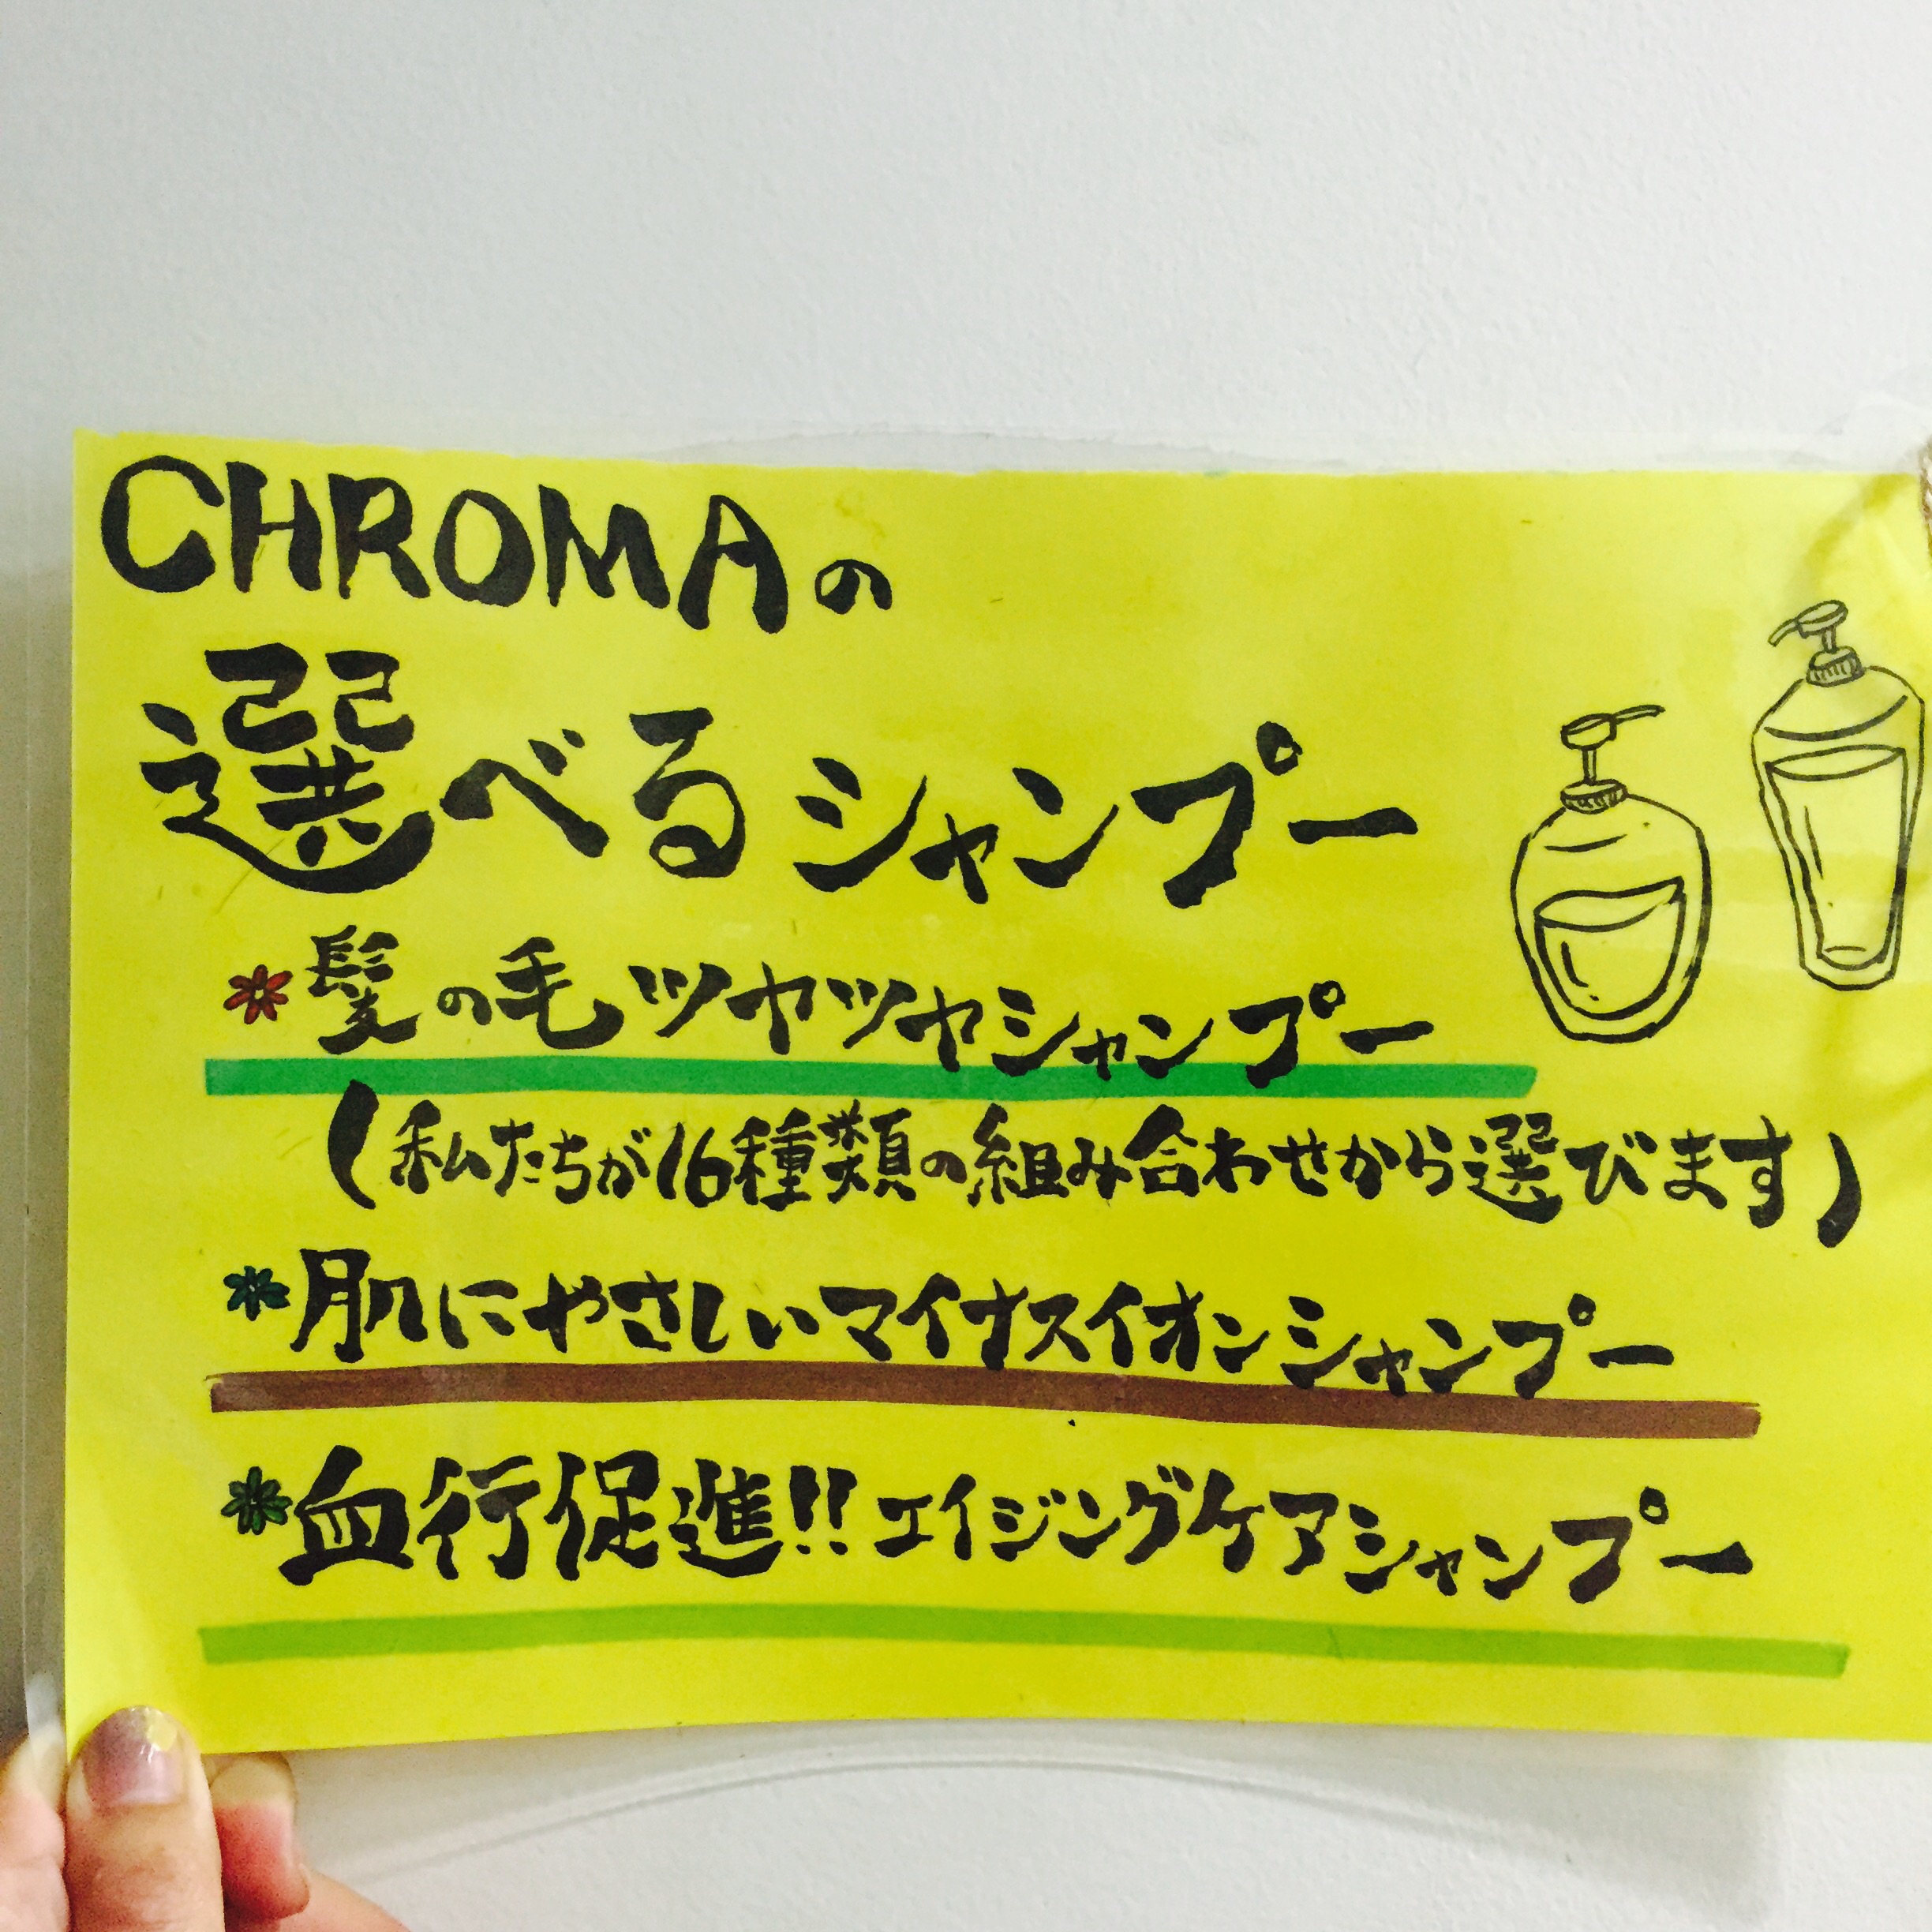 CHROMAの
選べるシャンプー
*髪の毛ツヤツヤシャンプー
(私たちが16種類の組み合わせから選びます)
*肌にやさしいマイナスイオンシャンプー
*血行促進!!エイジングケアシャンプー